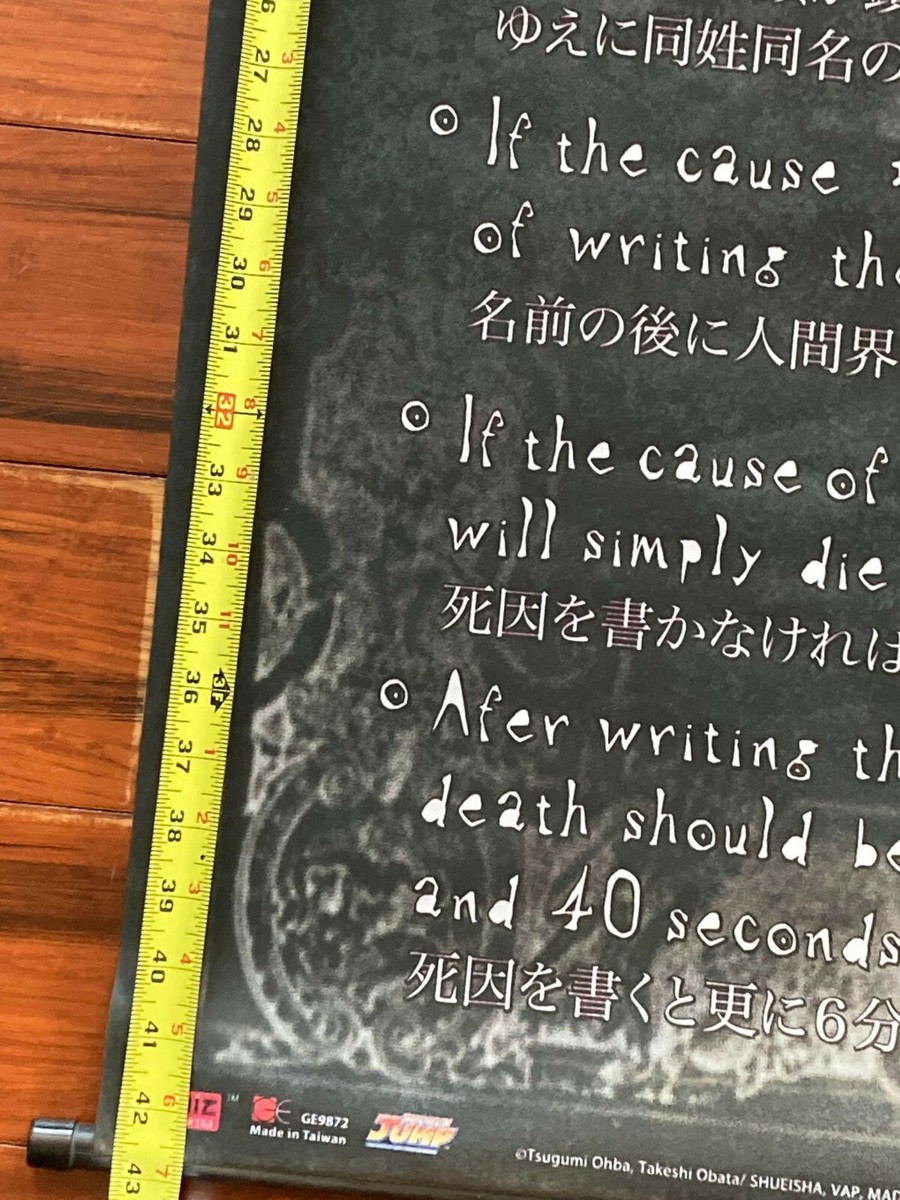 ゆえに同姓同名の
If the cause
of writing the
名前の後に人間界
If the cause of
will simply die
死因を書かなければ
Afer writing th
death should be
and 40 seconds
死因を書くと更に6分
26
27
28
29
30
31
32
33
34
35
36
37
38
39
40
41
42
43
3
4
5
6
7
8
9
10
11
3F
1
2
3
4
5
6
7
IZ
TM
GE
GE9872
Made in Taiwan
JUMP
©Tsugumi Ohba, Takeshi Obata/ SHUEISHA, VAP, MAD